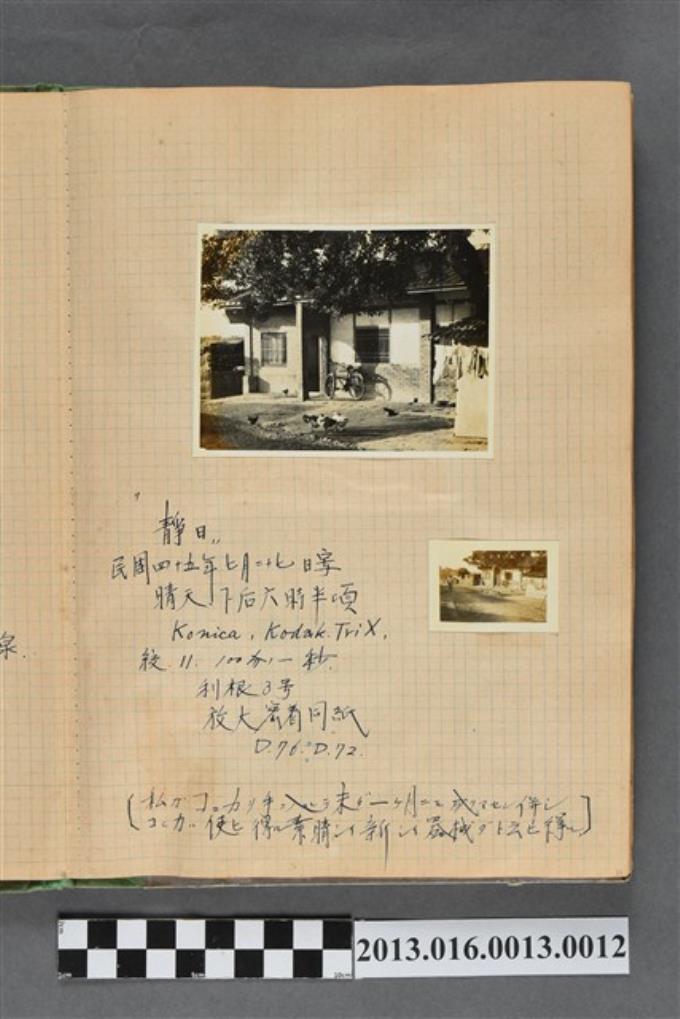 "靜日"
民國四十五年七月二十七日寫
晴天 下后六時半頃
Konica, Kodak. Tri X.
絞 11. 100分ノ一秒.
利根3号
放大密着同紙
D.76. D.72.
私ガコニカヲ手ニ入レテ未ダ一ヶ月ニモ成リマセン併シ
コニカ 使ヒ得ル素晴シイ新シイ器械ダト云ヒ得
泉.
2013.016.0013.0012